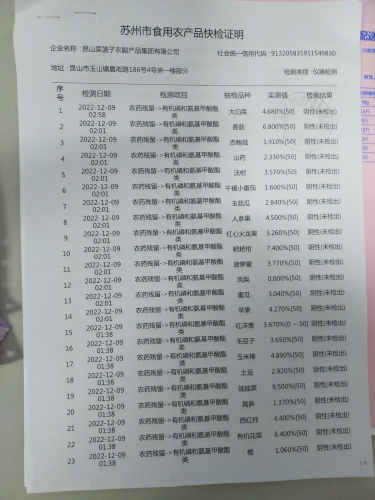 苏州市食用农产品快检证明
企业名称：昆山菜篮子农副产品集团有限公司 社会统一信用代码：91320583591154983D
地址：昆山市玉山镇晨和路186号4号房一楼部分 检测类目：仪器检测
序号 检测日期 检测项目 抽检品种 实测值 检测结果
1 2022-12-09 02:58 农药残留->有机磷和氨基甲酸酯类 大白菜 4.680%[50] 阴性(未检出)
2 2022-12-09 02:01 农药残留->有机磷和氨基甲酸酯类 香菇 6.800%[50] 阴性(未检出)
3 2022-12-09 02:01 农药残留->有机磷和氨基甲酸酯类 杏鲍菇 1.910%[50] 阴性(未检出)
4 2022-12-09 02:01 农药残留->有机磷和氨基甲酸酯类 山药 2.330%[50] 阴性(未检出)
5 2022-12-09 02:01 农药残留->有机磷和氨基甲酸酯类 沃柑 3.570%[50] 阴性(未检出)
6 2022-12-09 02:01 农药残留->有机磷和氨基甲酸酯类 千禧小番茄 1.600%[50] 阴性(未检出)
7 2022-12-09 02:01 农药残留->有机磷和氨基甲酸酯类 玉菇瓜 2.840%[50] 阴性(未检出)
8 2022-12-09 02:01 农药残留->有机磷和氨基甲酸酯类 人参果 4.500%[50] 阴性(未检出)
9 2022-12-09 02:01 农药残留->有机磷和氨基甲酸酯类 红心火龙果 3.260%[50] 阴性(未检出)
10 2022-12-09 02:01 农药残留->有机磷和氨基甲酸酯类 粑粑柑 7.400%[50] 阴性(未检出)
11 2022-12-09 02:01 农药残留->有机磷和氨基甲酸酯类 菠萝蜜 3.770%[50] 阴性(未检出)
12 2022-12-09 02:01 农药残留->有机磷和氨基甲酸酯类 凤梨 0.000%[50] 阴性(未检出)
13 2022-12-09 02:01 农药残留->有机磷和氨基甲酸酯类 蜜瓜 3.040%[50] 阴性(未检出)
14 2022-12-09 02:01 农药残留->有机磷和氨基甲酸酯类 苹果 4.270%[50] 阴性(未检出)
15 2022-12-09 01:38 农药残留->有机磷和氨基甲酸酯类 红洋葱 3.670%[0－50] 阴性(未检出)
16 2022-12-09 01:38 农药残留->有机磷和氨基甲酸酯类 毛豆子 3.650%[50] 阴性(未检出)
17 2022-12-09 01:38 农药残留->有机磷和氨基甲酸酯类 玉米棒 4.890%[50] 阴性(未检出)
18 2022-12-09 01:38 农药残留->有机磷和氨基甲酸酯类 土豆 2.920%[50] 阴性(未检出)
19 2022-12-09 01:38 农药残留->有机磷和氨基甲酸酯类 娃娃菜 9.500%[50] 阴性(未检出)
20 2022-12-09 01:38 农药残留->有机磷和氨基甲酸酯类 莴笋 1.370%[50] 阴性(未检出)
21 2022-12-09 01:38 农药残留->有机磷和氨基甲酸酯类 西红柿 4.400%[50] 阴性(未检出)
22 2022-12-09 01:38 农药残留->有机磷和氨基甲酸酯类 有机花菜 6.400%[50] 阴性(未检出)
23 2022-12-09 01:38 农药残留->有机磷和氨基甲酸酯类 橙 1.060%[50] 阴性(未检出)
配送